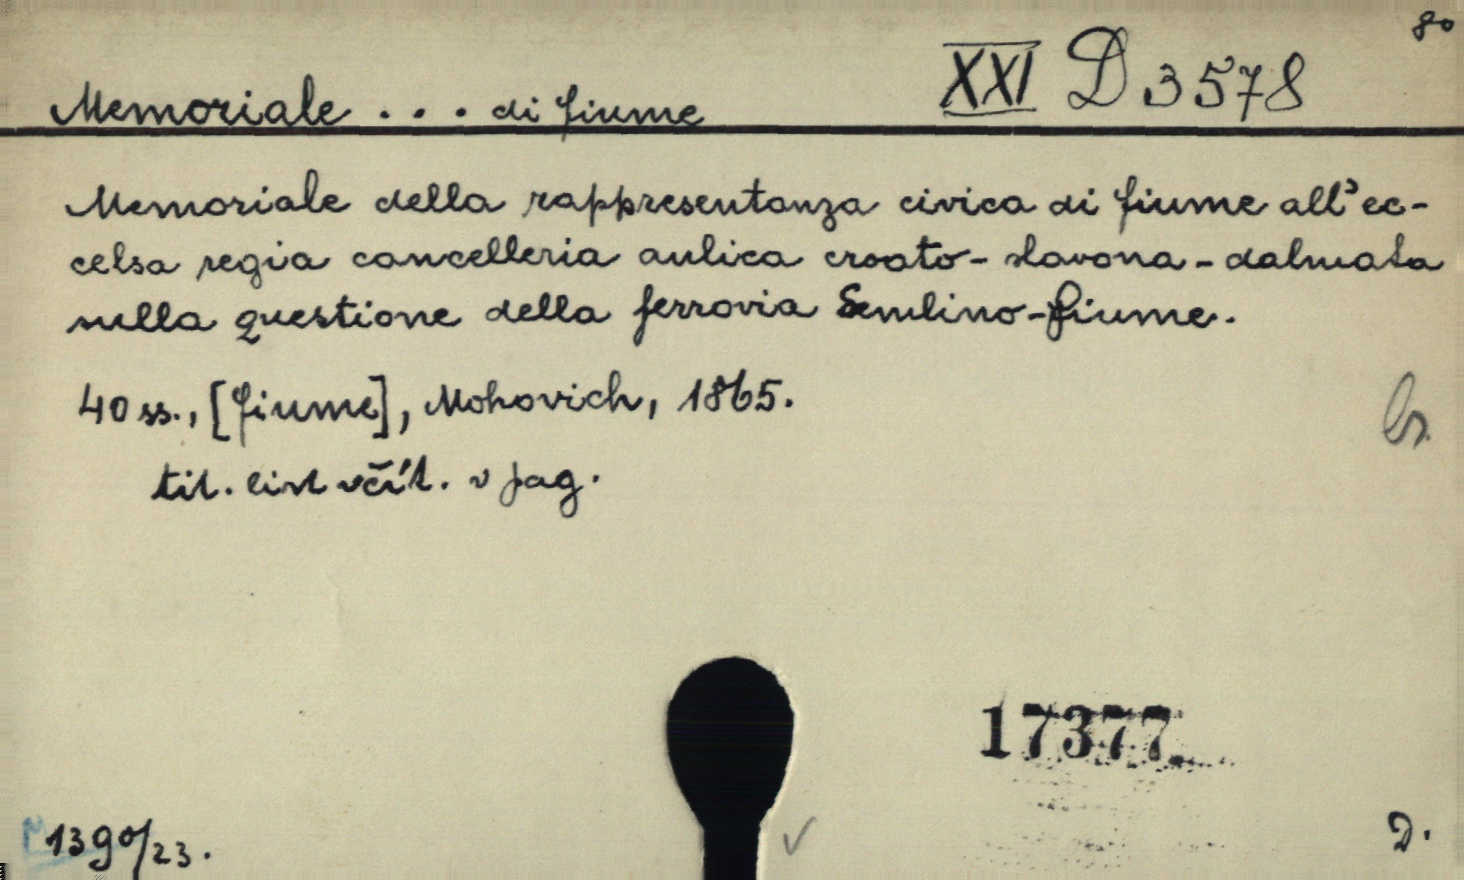 80
Memoriale . . . di fiume XXI D 3578
Memoriale della rappresentanza civica di fiume all'ec-
celsa regia cancelleria aulica croato-slavona-dalmata
sulla questione della ferrovia Semlino-fiume.
40 ss., [fiume], Mohovich, 1865.
tit. list včít. v pag.
17377
1390/23.
D.